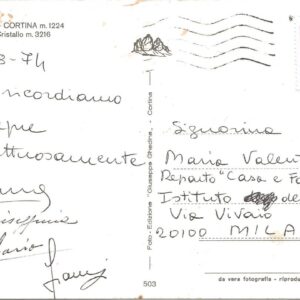 CORTINA m. 1224
Cristallo m. 3216
3-74
ncordiamo
pre
ttuosamente
503
Foto-Edizione "Giuseppe Ghedina" - Cortina
Signorina
Maria Valen
Reparto "Casa e F
Istituto de
Via Vivaio
20100 MILA
da vera fotografia - riprodu